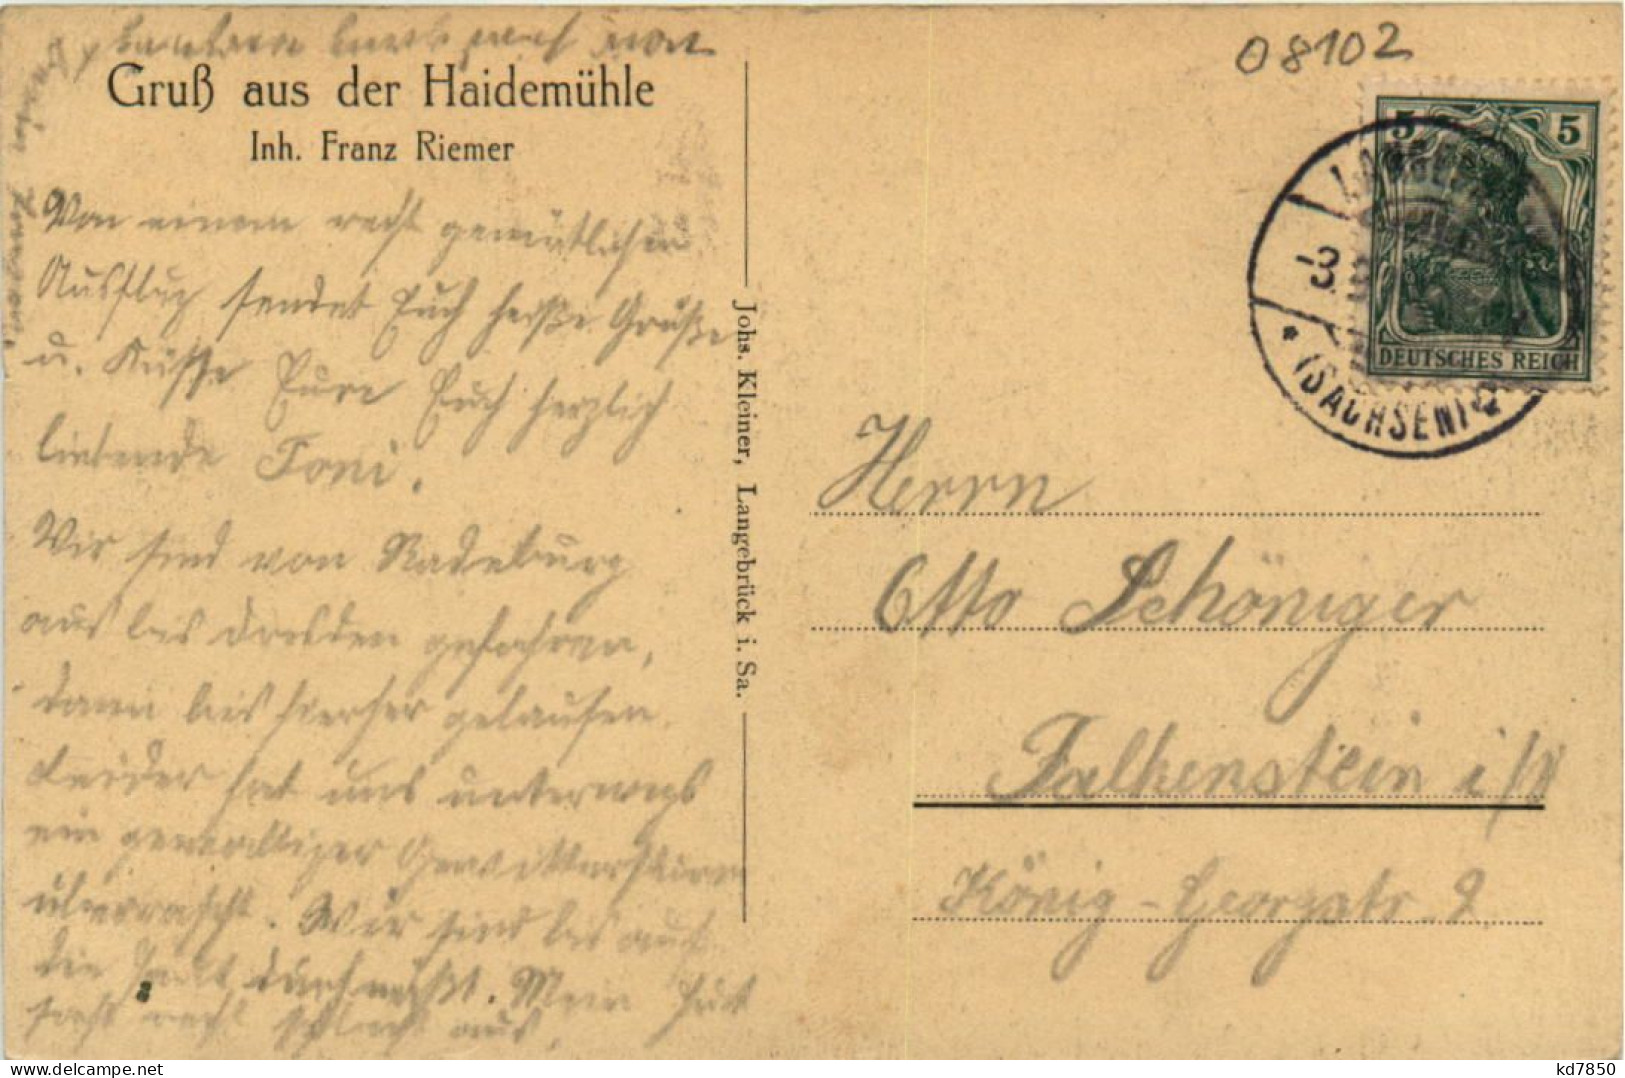 08102
Gruß aus der Haidemühle
Inh. Franz Riemer
Von einem recht gemütlichen
Ausflug sendet Euch heiße Grüße
u. Küsse Eure Euch herzlich
liebende Toni.
Wir sind von Radeburg
aus bis Dresden gefahren,
dann bis hierher gelaufen.
Leider hat uns unterwegs
ein gewaltiger Gewittersturm
überrascht. Wir sind bis auf
die Haut durchnäßt. Mein Hut
sieht recht schlecht aus.
Johs. Kleiner, Langebrück i. Sa.
5 5
DEUTSCHES REICH
-3.
* (SACHSEN)
Herrn
Otto Schöniger
Falkenstein i/V
König-Georgstr. 2
kd7850